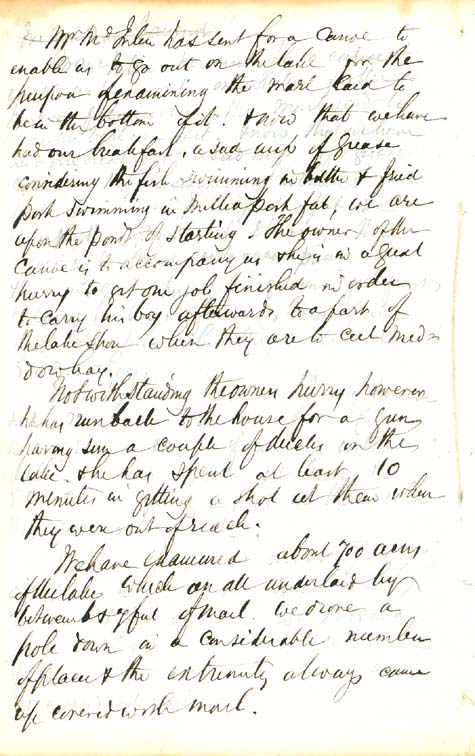 Mr McInlu has sent for a Canoe to
enable us to go out on the lake for the
purpose of examining the marl said to
be in the bottom of it & now that we have
had our breakfast, a sad mess of grease
considering the fish swimming in butter & fried
pork swimming in melted pork fat, we are
upon the point of starting. The owner of the
Canoe is to accompany us & he is in a great
hurry to get one job finished in order
to carry his boy afterwards to a part of
the lake Shore where they are to cut mea
dow hay.
Notwithstanding the owners hurry however
he has run back to the house for a gun
having seen a couple of ducks on the
lake & he has spent at least 10
minutes in getting a shot at them when
they were out of reach.
We have examined about 700 acres
of the lake which are all underlaid by
between 6 & 7 feet of marl. We drove a
pole down in a considerable number
of places & the extremity always came
up covered with marl.